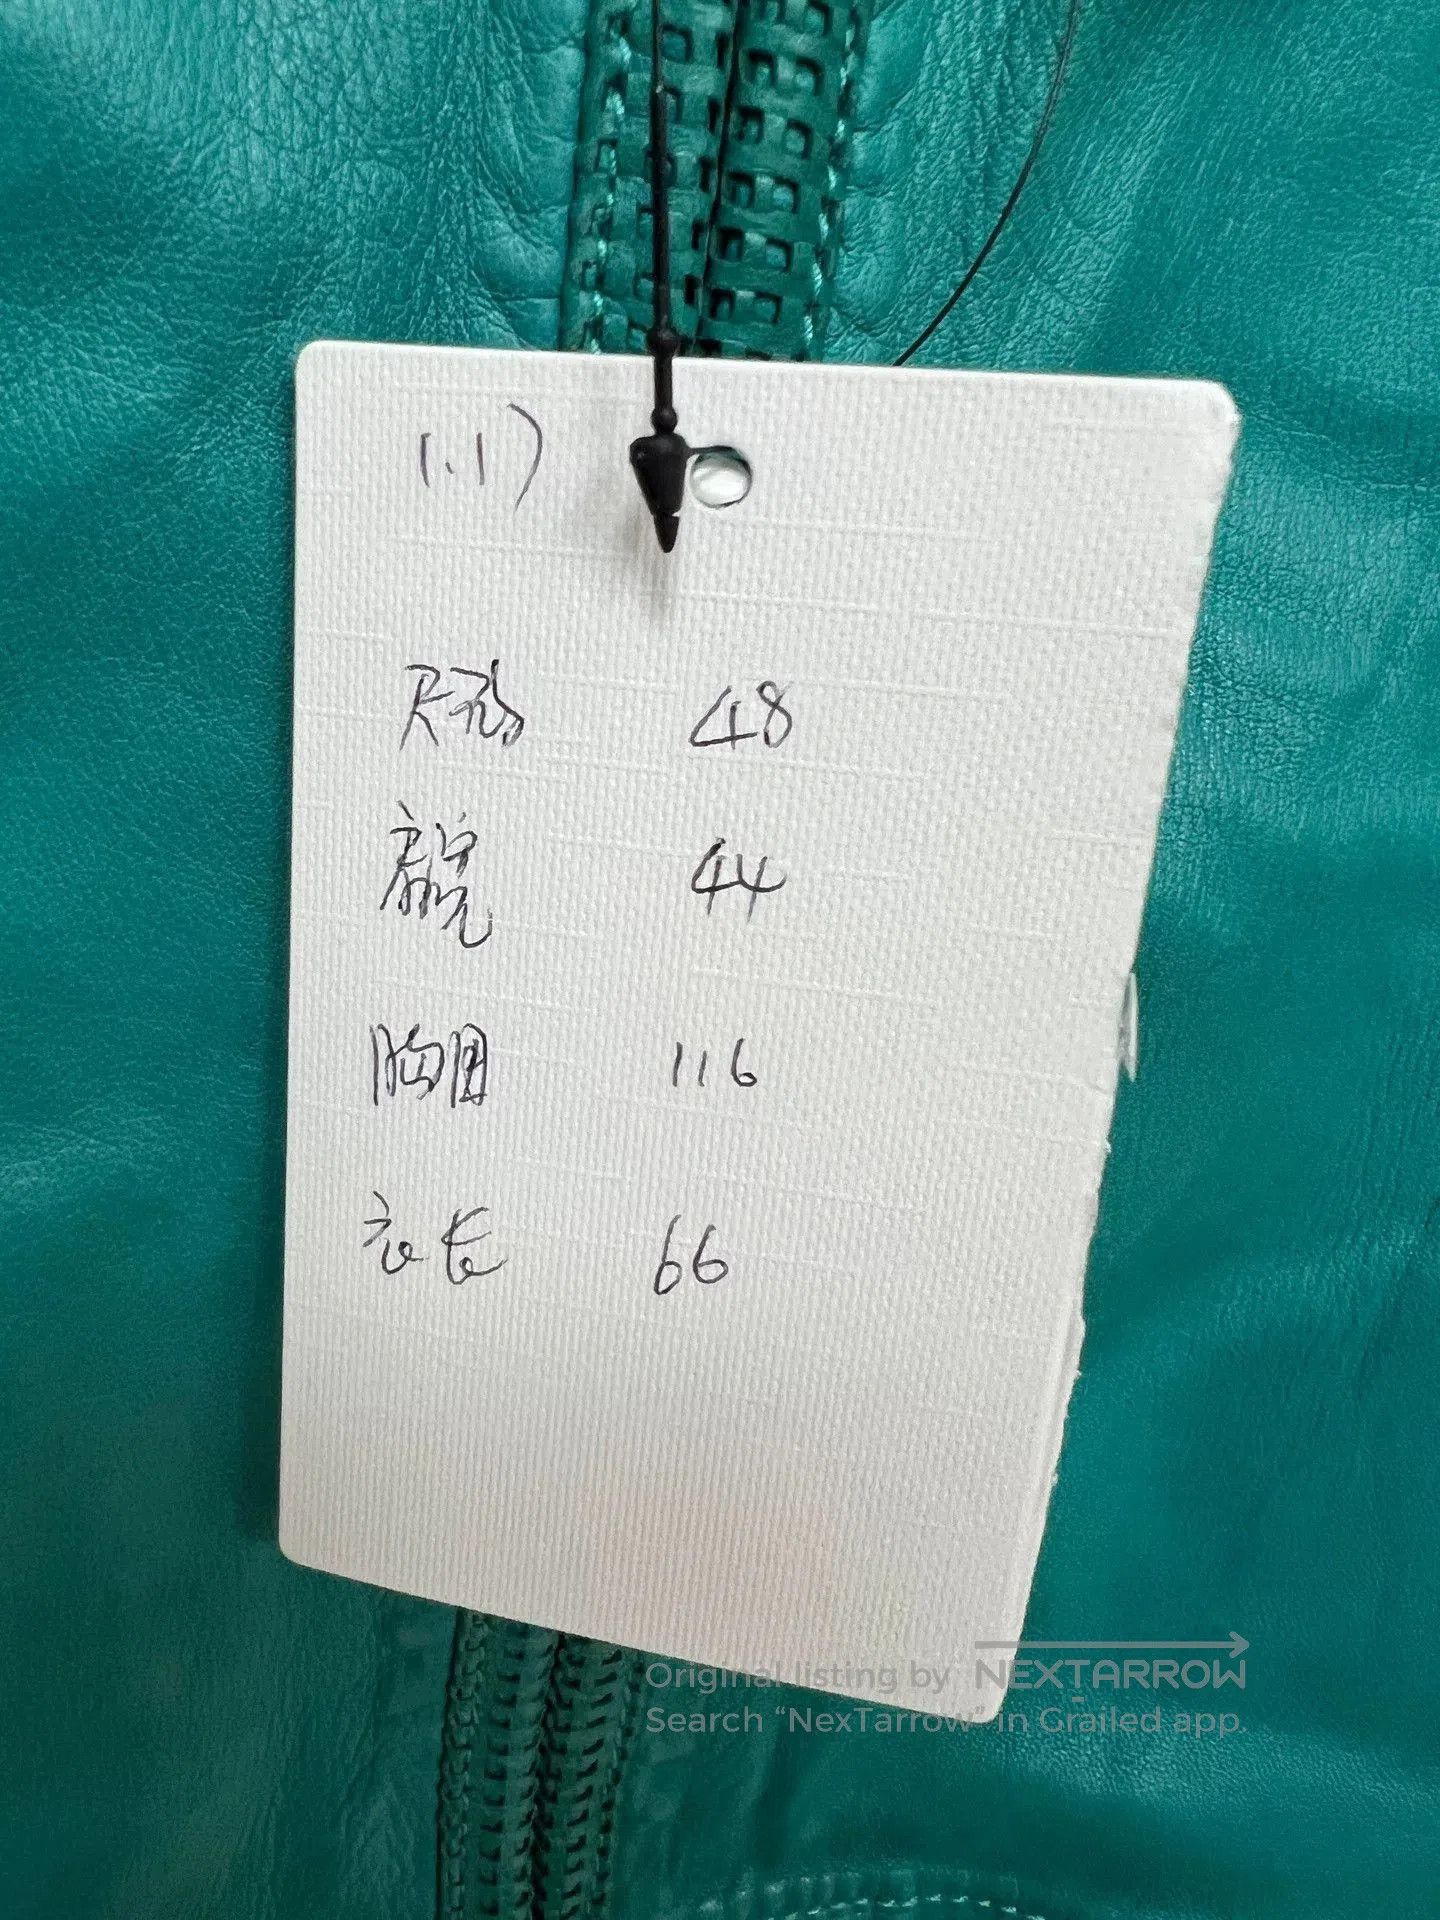 1.1)
尺码 48
肩宽 44
胸围 116
衣长 66
Original listing by NEXTARROW
Search “NexTarrow” in Grailed app.